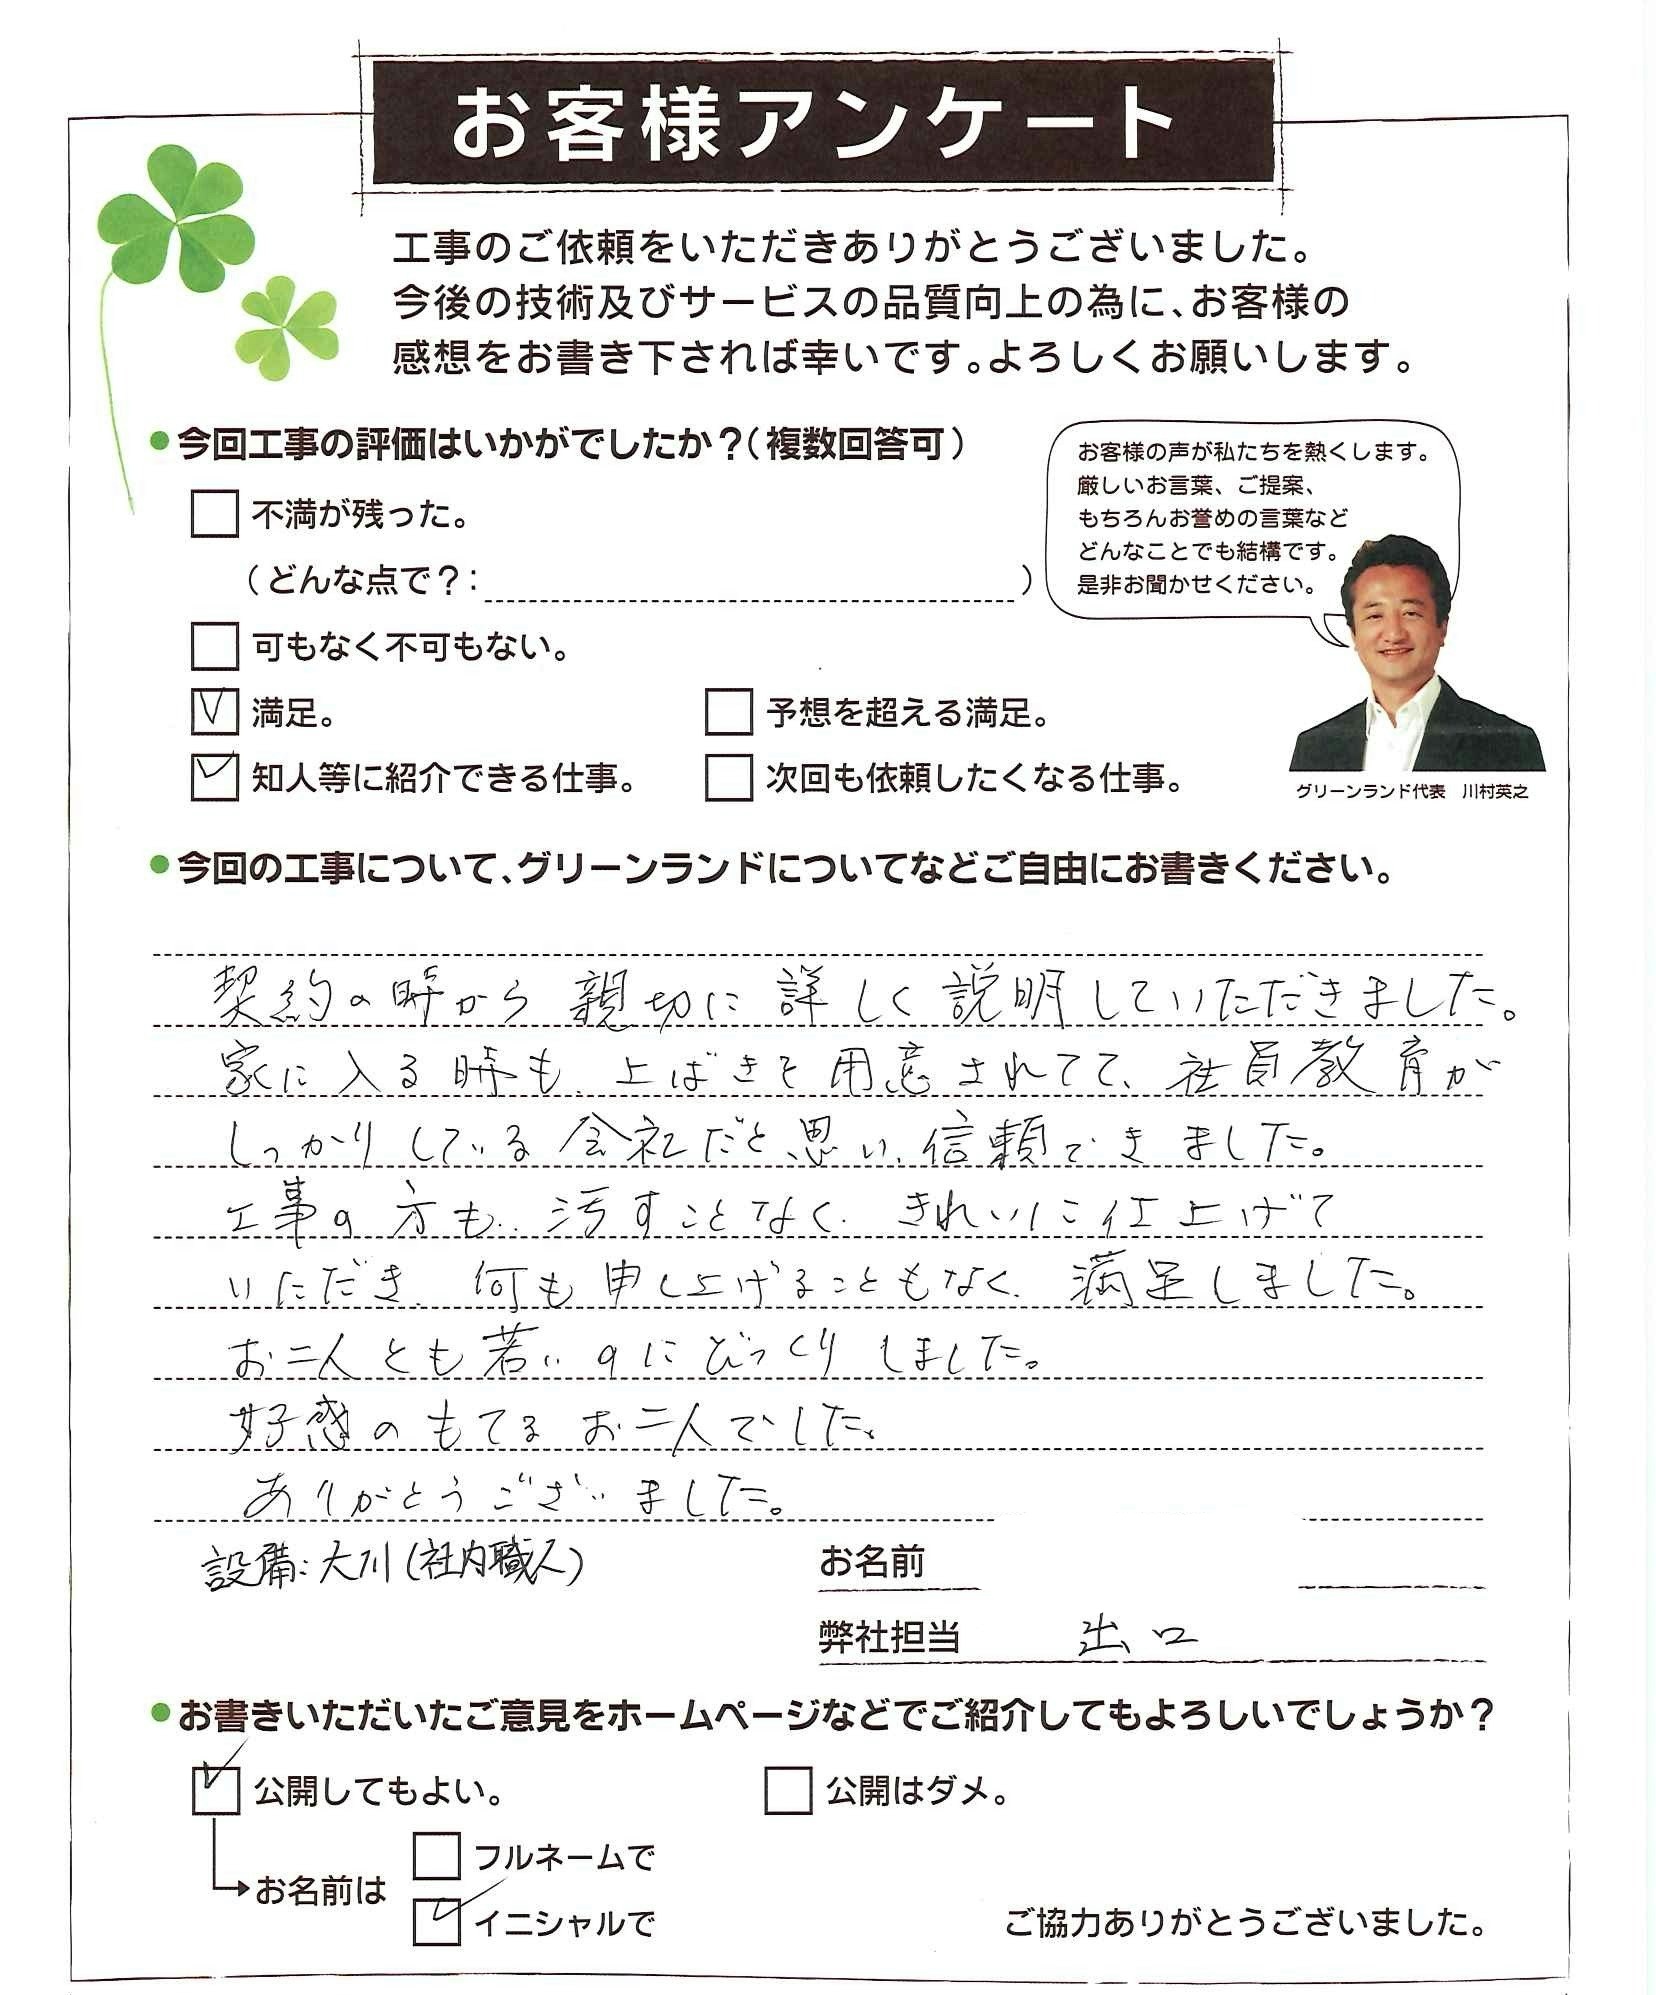 お客様アンケート
工事のご依頼をいただきありがとうございました。
今後の技術及びサービスの品質向上の為に、お客様の
感想をお書き下されば幸いです。よろしくお願いします。
●今回工事の評価はいかがでしたか？（複数回答可）
不満が残った。
（どんな点で？：　）
可もなく不可もない。
満足。
予想を超える満足。
知人等に紹介できる仕事。
次回も依頼したくなる仕事。
お客様の声が私たちを熱くします。
厳しいお言葉、ご提案、
もちろんお誉めの言葉など
どんなことでも結構です。
是非お聞かせください。
グリーンランド代表　川村英之
●今回の工事について、グリーンランドについてなどご自由にお書きください。
契約の時から親切に詳しく説明していただきました。
家に入る時も、上ばきを用意されてて、社員教育が
しっかりしている会社だと思い、信頼できました。
工事の方も、汚すことなく、きれいに仕上げて
いただき、何も申し上げることもなく、満足しました。
お二人とも若いのにびっくりしました。
好感のもてるお二人でした。
ありがとうございました。
設備：大川（社内職人）
お名前
弊社担当　出口
●お書きいただいたご意見をホームページなどでご紹介してもよろしいでしょうか？
公開してもよい。
公開はダメ。
お名前は
フルネームで
イニシャルで
ご協力ありがとうございました。